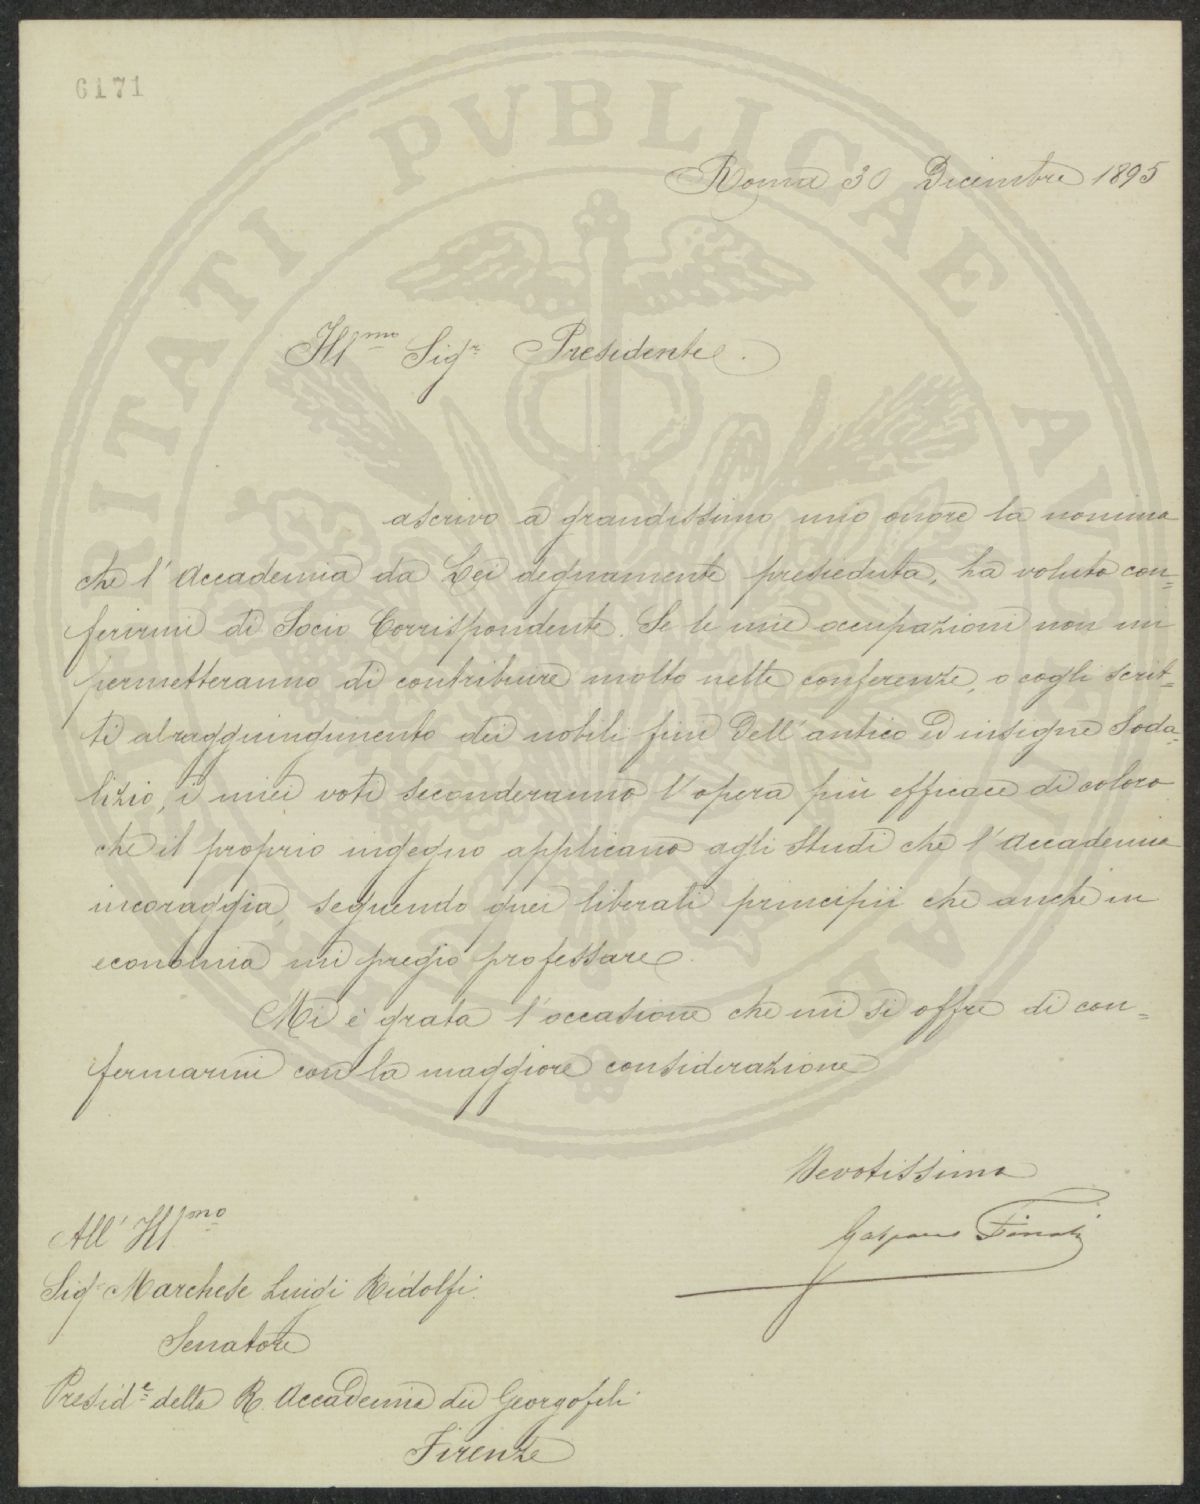 6171
Roma 30 Dicembre 1895
Ill.mo Sigr Presidente.
ascrivo a grandissimo mio onore la nomina
che l'Accademia da Lei degnamente presieduta, ha voluto con=
ferirmi di Socio Corrispondente. Se le mie occupazioni non mi
permetteranno di contribuire molto nelle conferenze, o cogli scrit=
ti al raggiungimento dei nobili fini dell'antico ed insigne Soda=
lizio, i miei voti seconderanno l'opera più efficace di coloro
che il proprio ingegno applicano agli studi che l'Accademia
incoraggia, seguendo quei liberali principii che anche in
economia mi pregio professare.
Mi è grata l'occasione che mi si offre di con=
fermarmi con la maggiore considerazione
Devotissimo
Gaspare Finali
All' Ill.mo
Sigr Marchese Luigi Ridolfi.
Senatore
Preside della R. Accademia dei Georgofili
Firenze